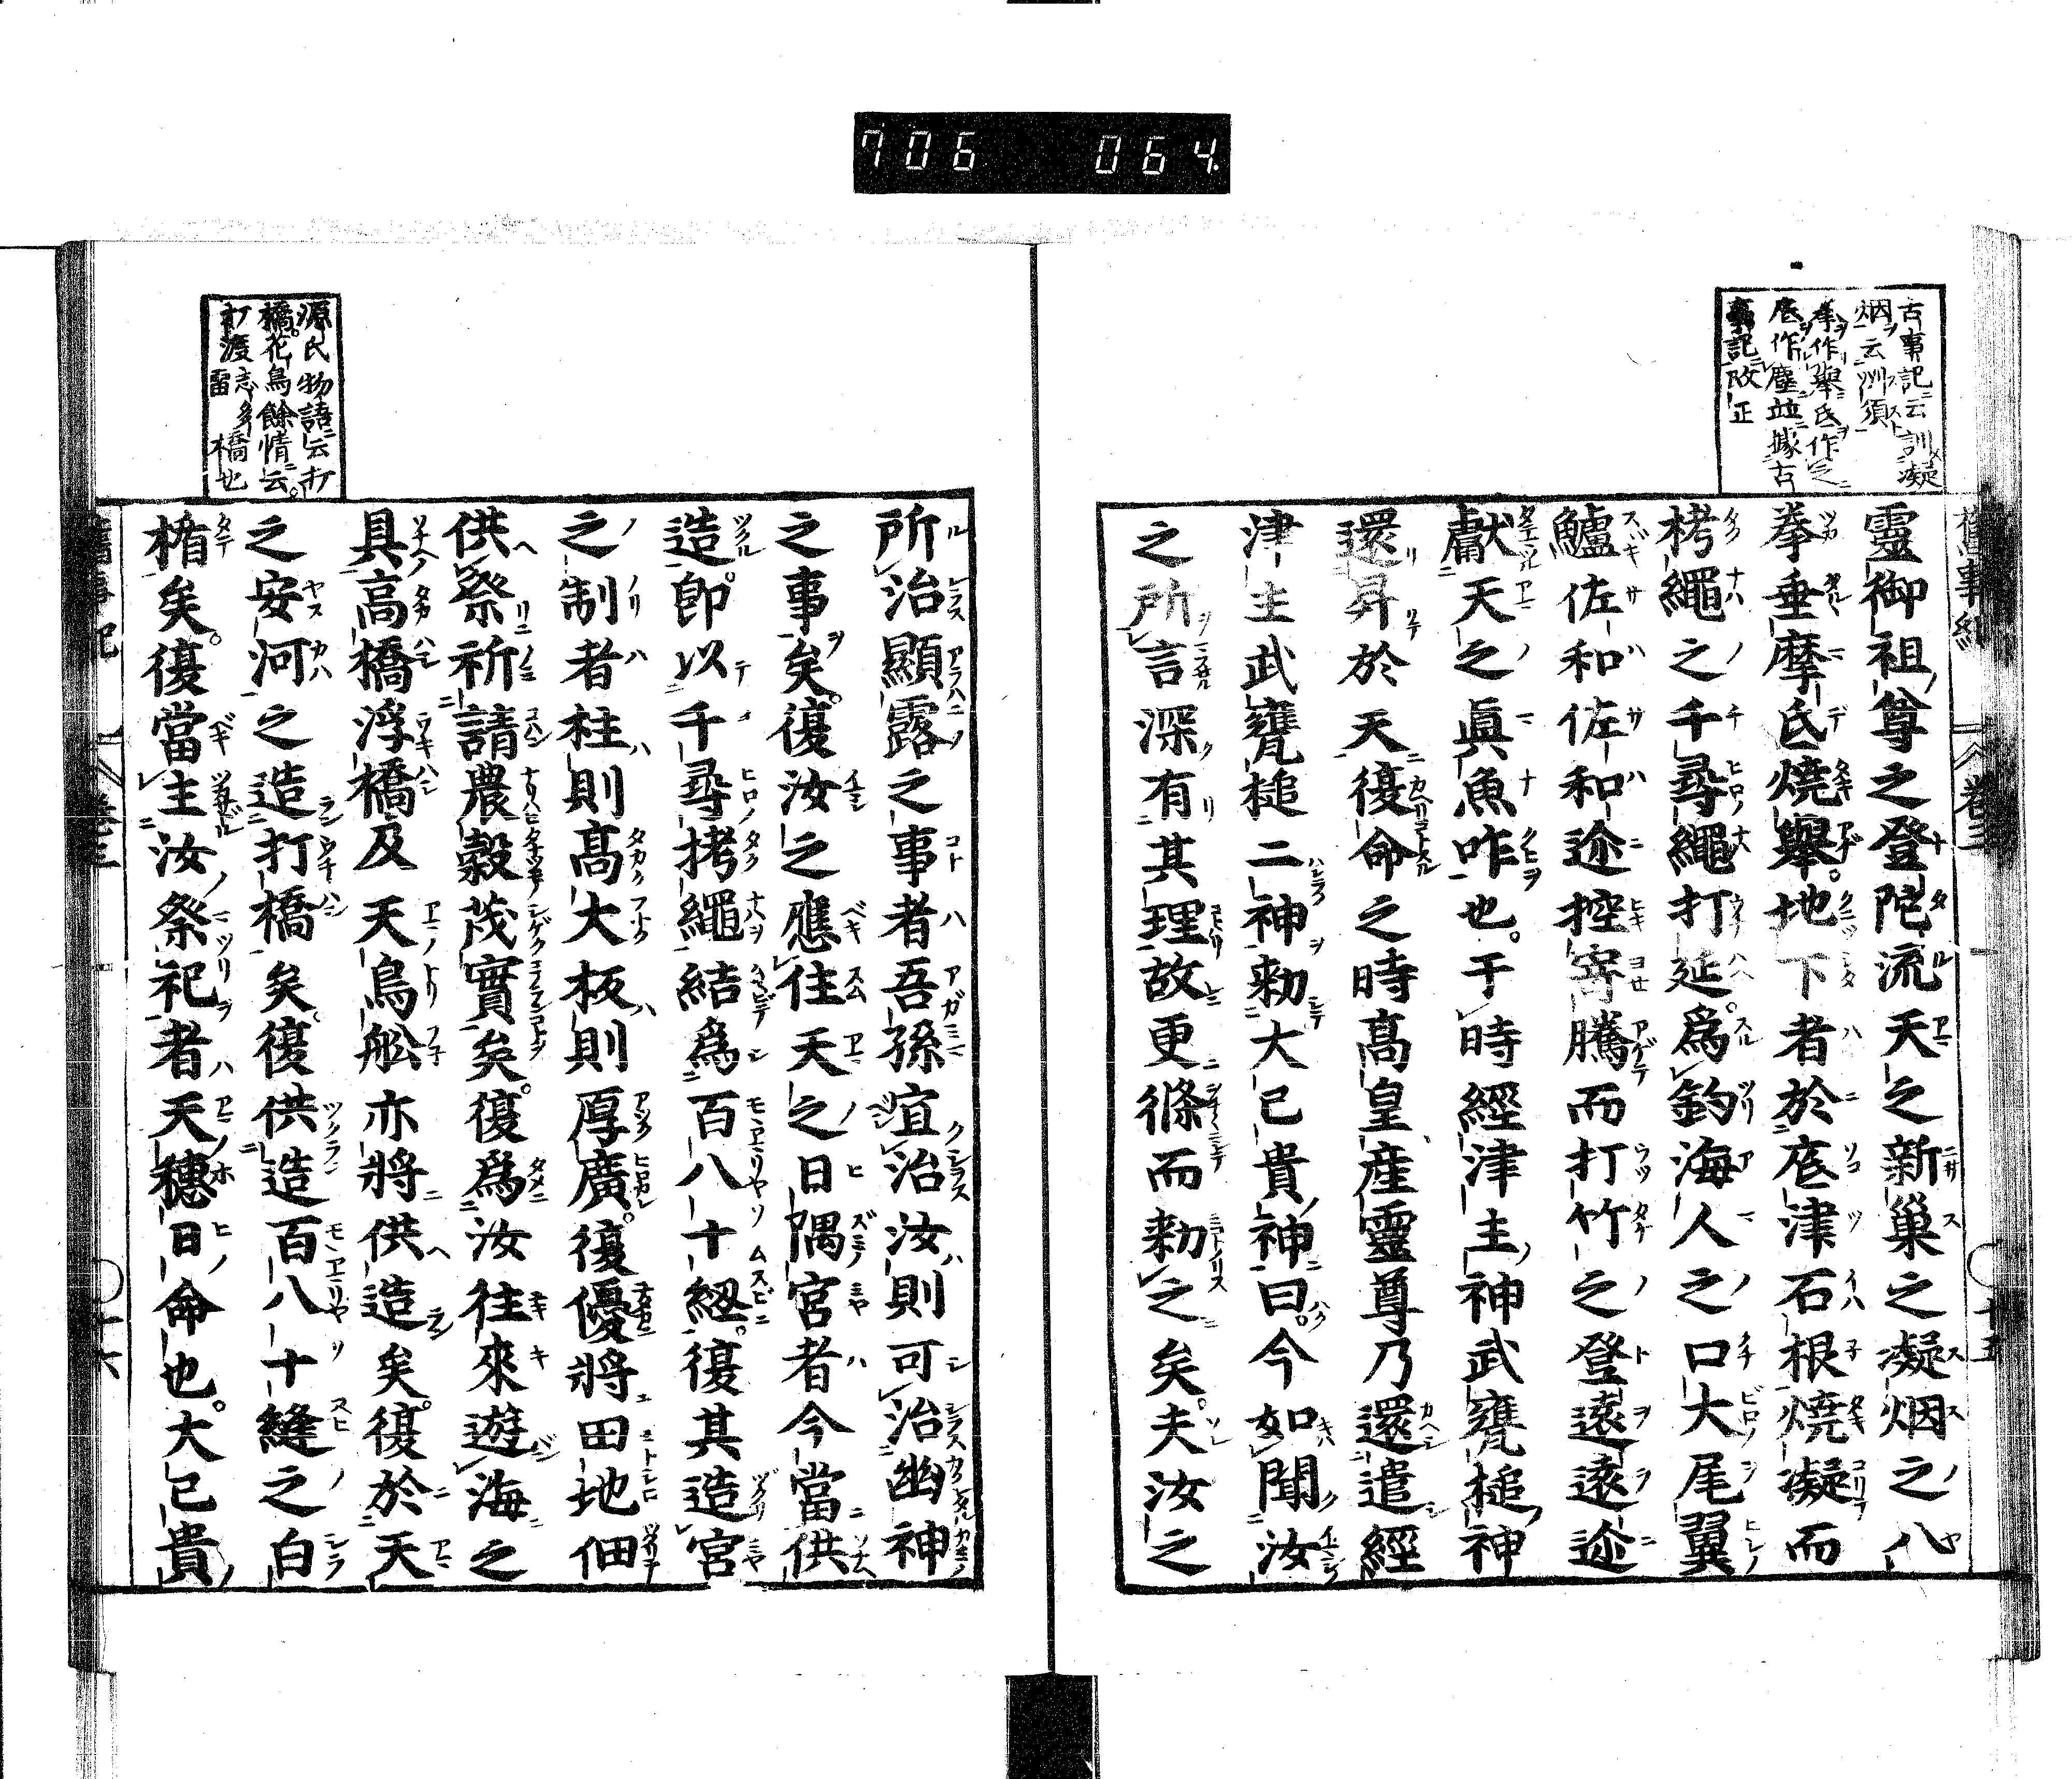 706 064
古事記云訓凝
烟云洲須
拳作舉氐作㡳
底作塵並據古
事記改正
舊事紀 卷三 十五
靈御祖尊之登陀流天之新巢之凝烟之八
拳垂摩氐燒舉。地下者於底津石根燒凝而
栲繩之千尋繩打延。爲釣海人之口大尾翼
鱸佐和佐和迩控寄騰而打竹之登遠遠迩
獻天之眞魚咋也。于時經津主神武甕槌神
還昇於天復命之時高皇産靈尊乃還遣經
津主武甕槌二神勅大己貴神曰。今如聞汝
之所言深有其理故更條而勅之矣。夫汝之
所治顯露之事者吾孫宜治汝則可治幽神
之事矣。復汝之應住天之日隅宮者今當供
造。即以千尋拷繩結爲百八十紐。復其造宮
之制者柱則高大板則厚廣。復優將田地佃
供祭祈請農穀茂實矣。復爲汝往來遊海之
具高橋浮橋及天鳥舩亦將供造矣。復於天
之安河之造打橋矣。復供造百八十縫之白
楯矣。復當主汝祭祀者天穗日命也。大己貴
源氏物語云打
橋。花鳥餘情云。
打渡志多橋也
雷
舊事紀 卷三 十六